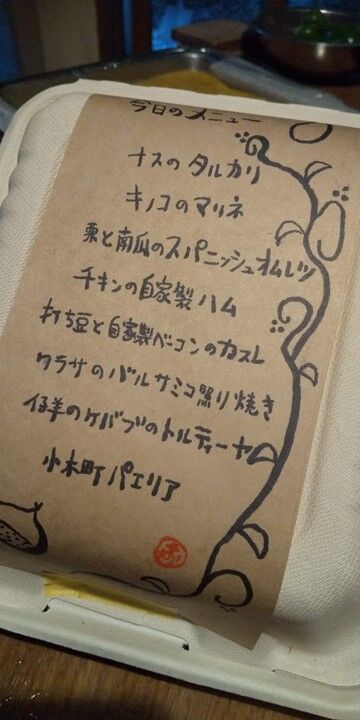 今日のメニュー
ナスのタルカリ
キノコのマリネ
栗と南瓜のスパニッシュオムレツ
チキンの自家製ハム
打ち豆と自家製ベーコンのカスレ
ワラサのバルサミコ照り焼き
仔羊のケバブのトルティーヤ
小木町パエリア